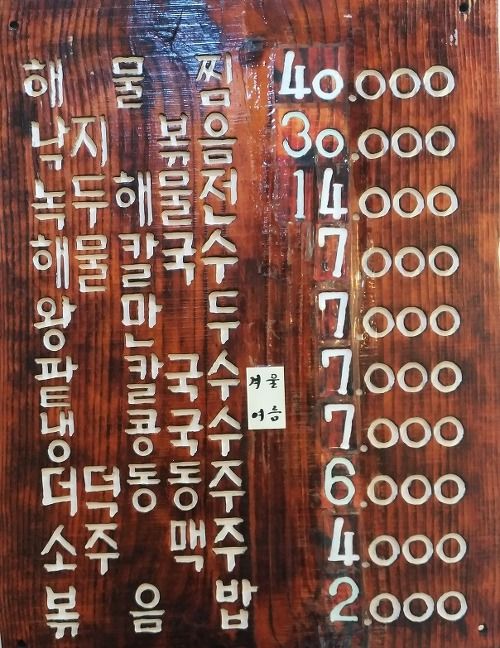 해 물 찜 40.000
낙지 볶음 30.000
녹두해물전 14.000
해물칼국수 7.000
왕 만 두 7.000
팥 칼국수 겨울 7.000
냉 콩국수 여름 7.000
더덕동동주 6.000
소주 맥주 4.000
볶 음 밥 2.000